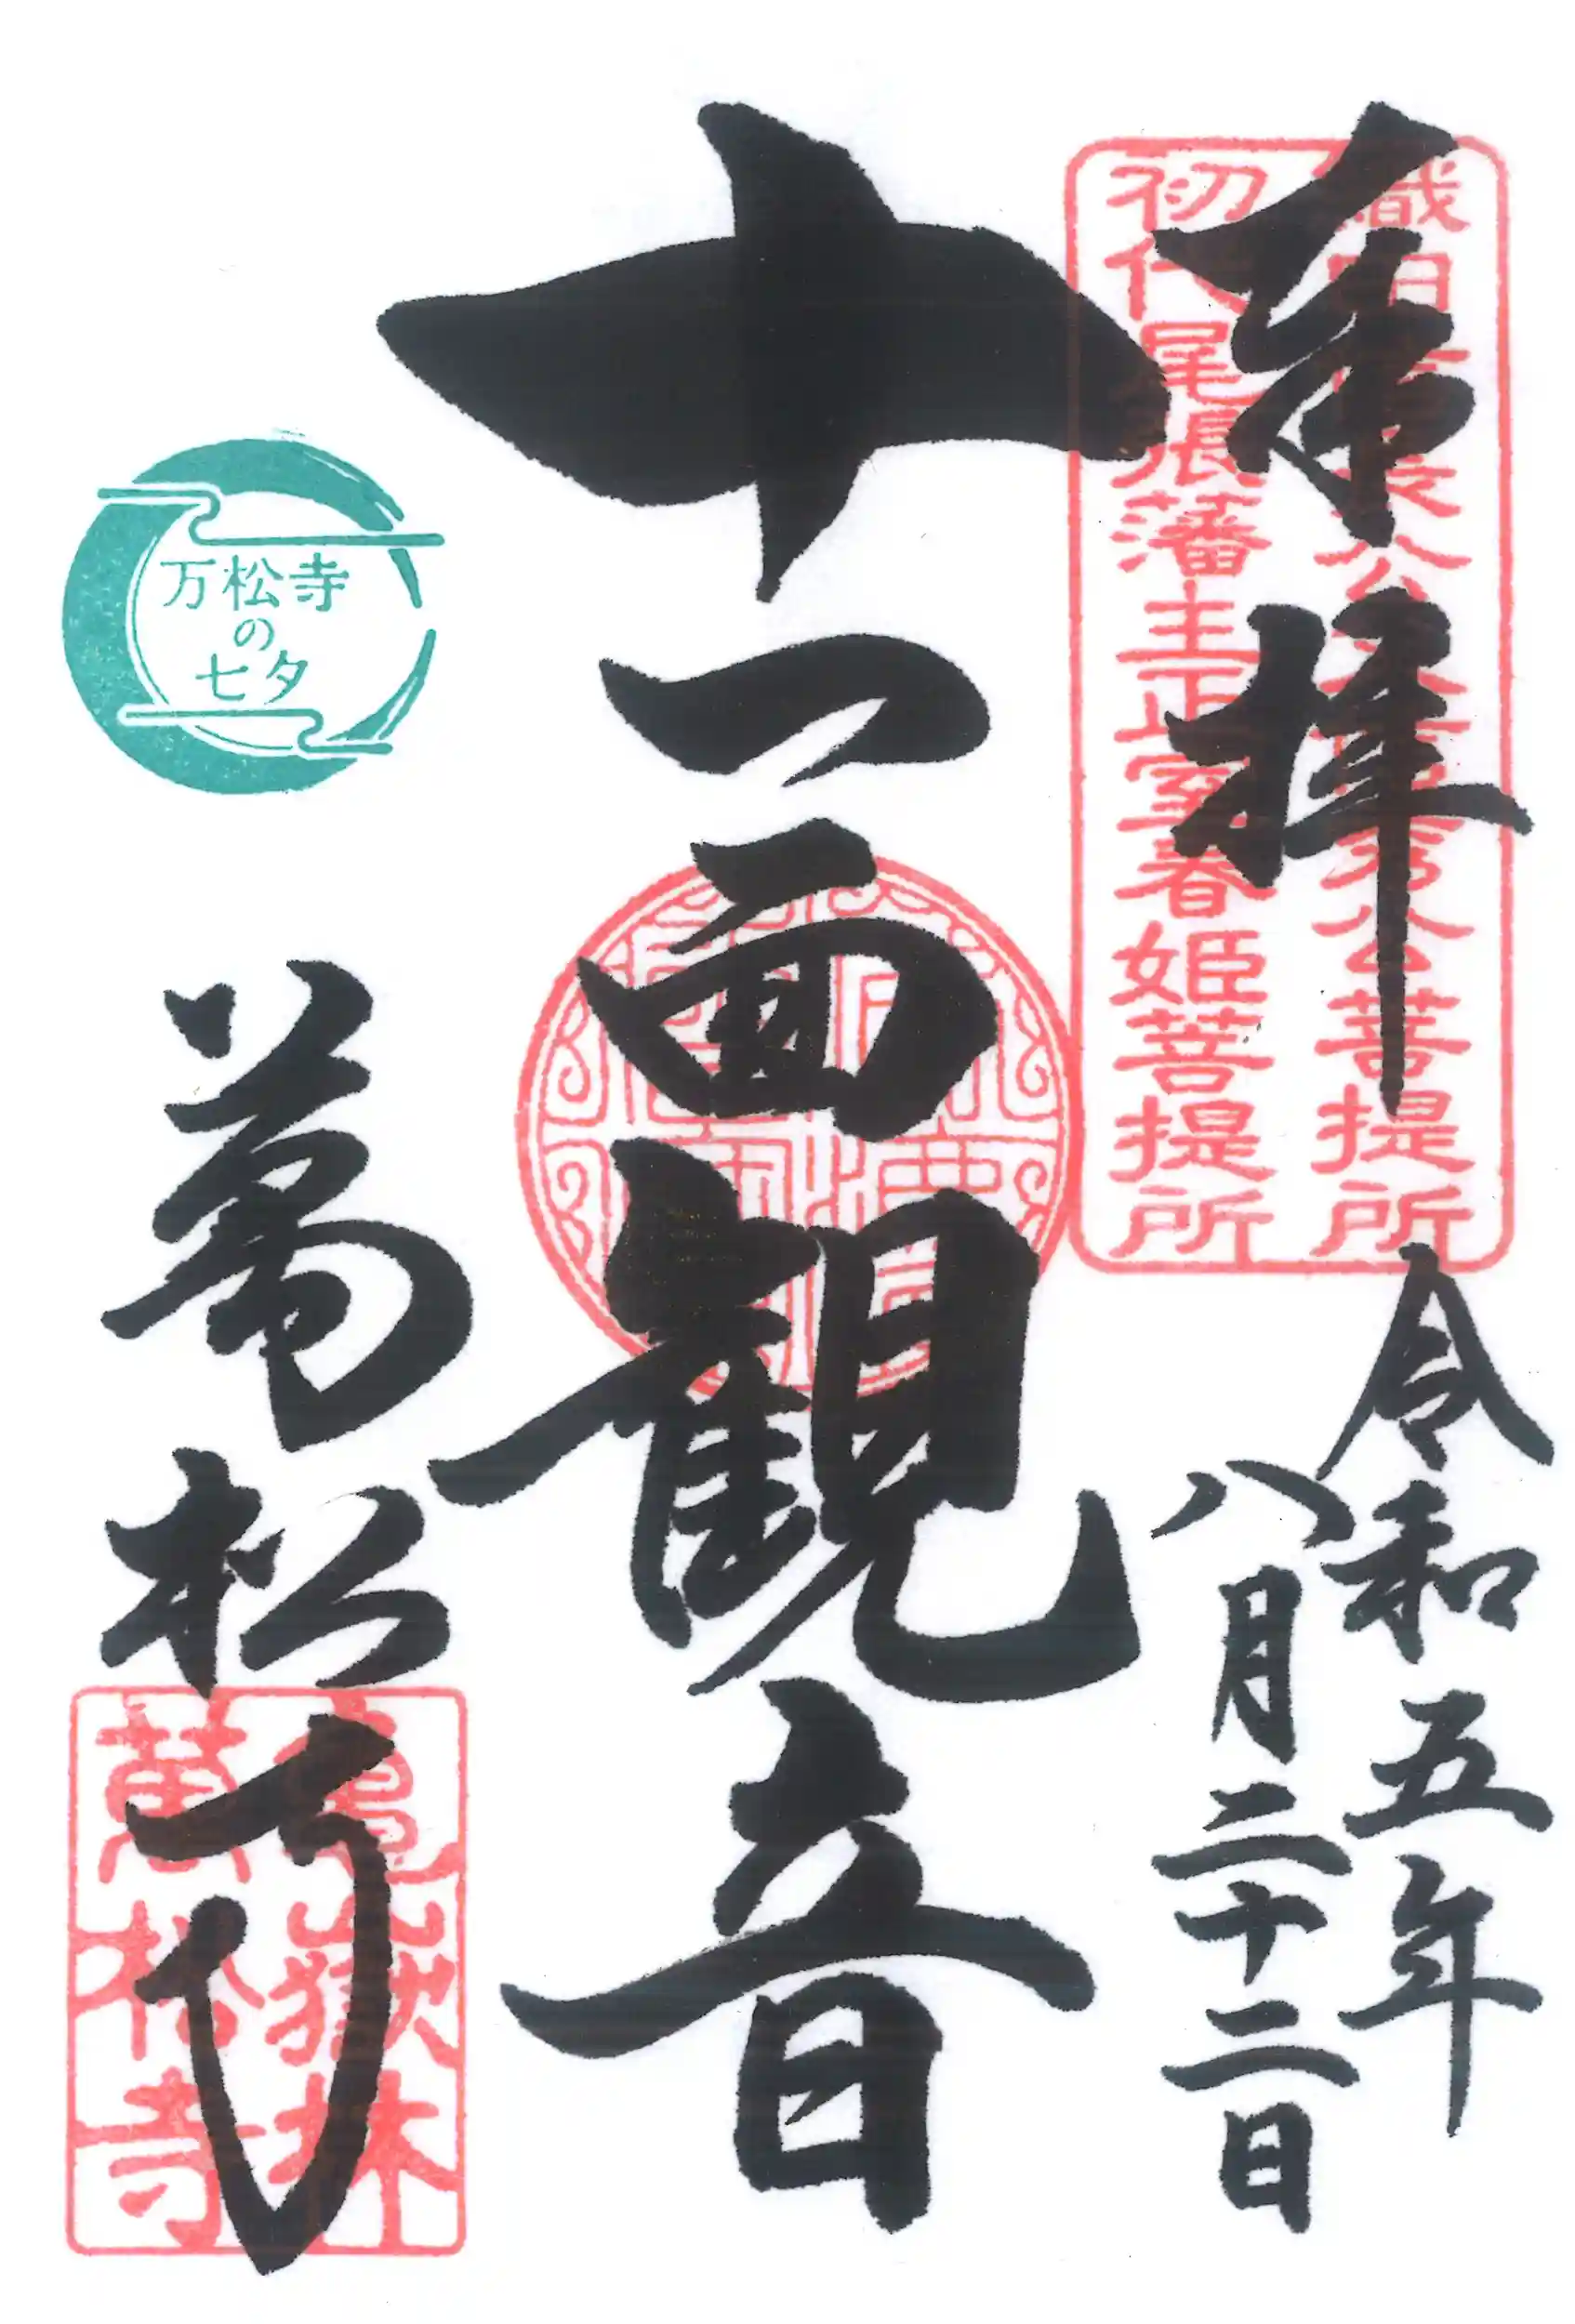 奉拝
織田信長公父信秀公菩提所
初代尾張藩主正室春姫菩提所
令和五年
八月二十二日
十一面観音
万松寺
の
七夕
萬松寺
亀嶽林
萬松寺